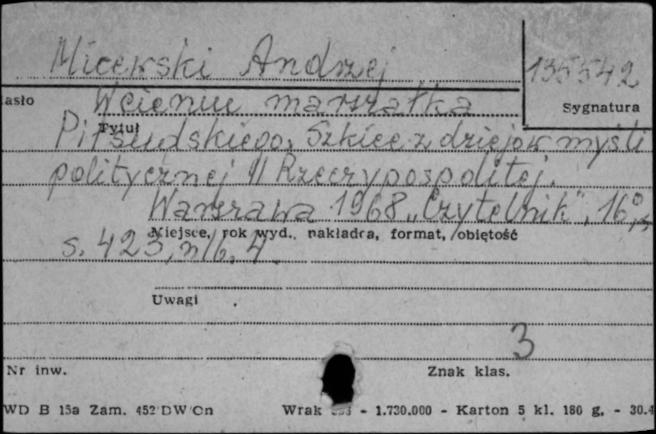 Micewski Andrzej
135542
asło
W cieniu marszałka
Sygnatura
Tytuł
Piłsudskiego. Szkice z dziejów myśli
politycznej II Rzeczypospolitej.
Warszawa 1968 „Czytelnik", 16°,
Miejsce, rok wyd., nakładca, format, objętość
s. 423, nlb. 4
Uwagi
3
Nr inw.
Znak klas.
WD B 15a Zam. 452 DW Cn Wrak - 1.730.000 - Karton 5 kl. 180 g. - 30.4